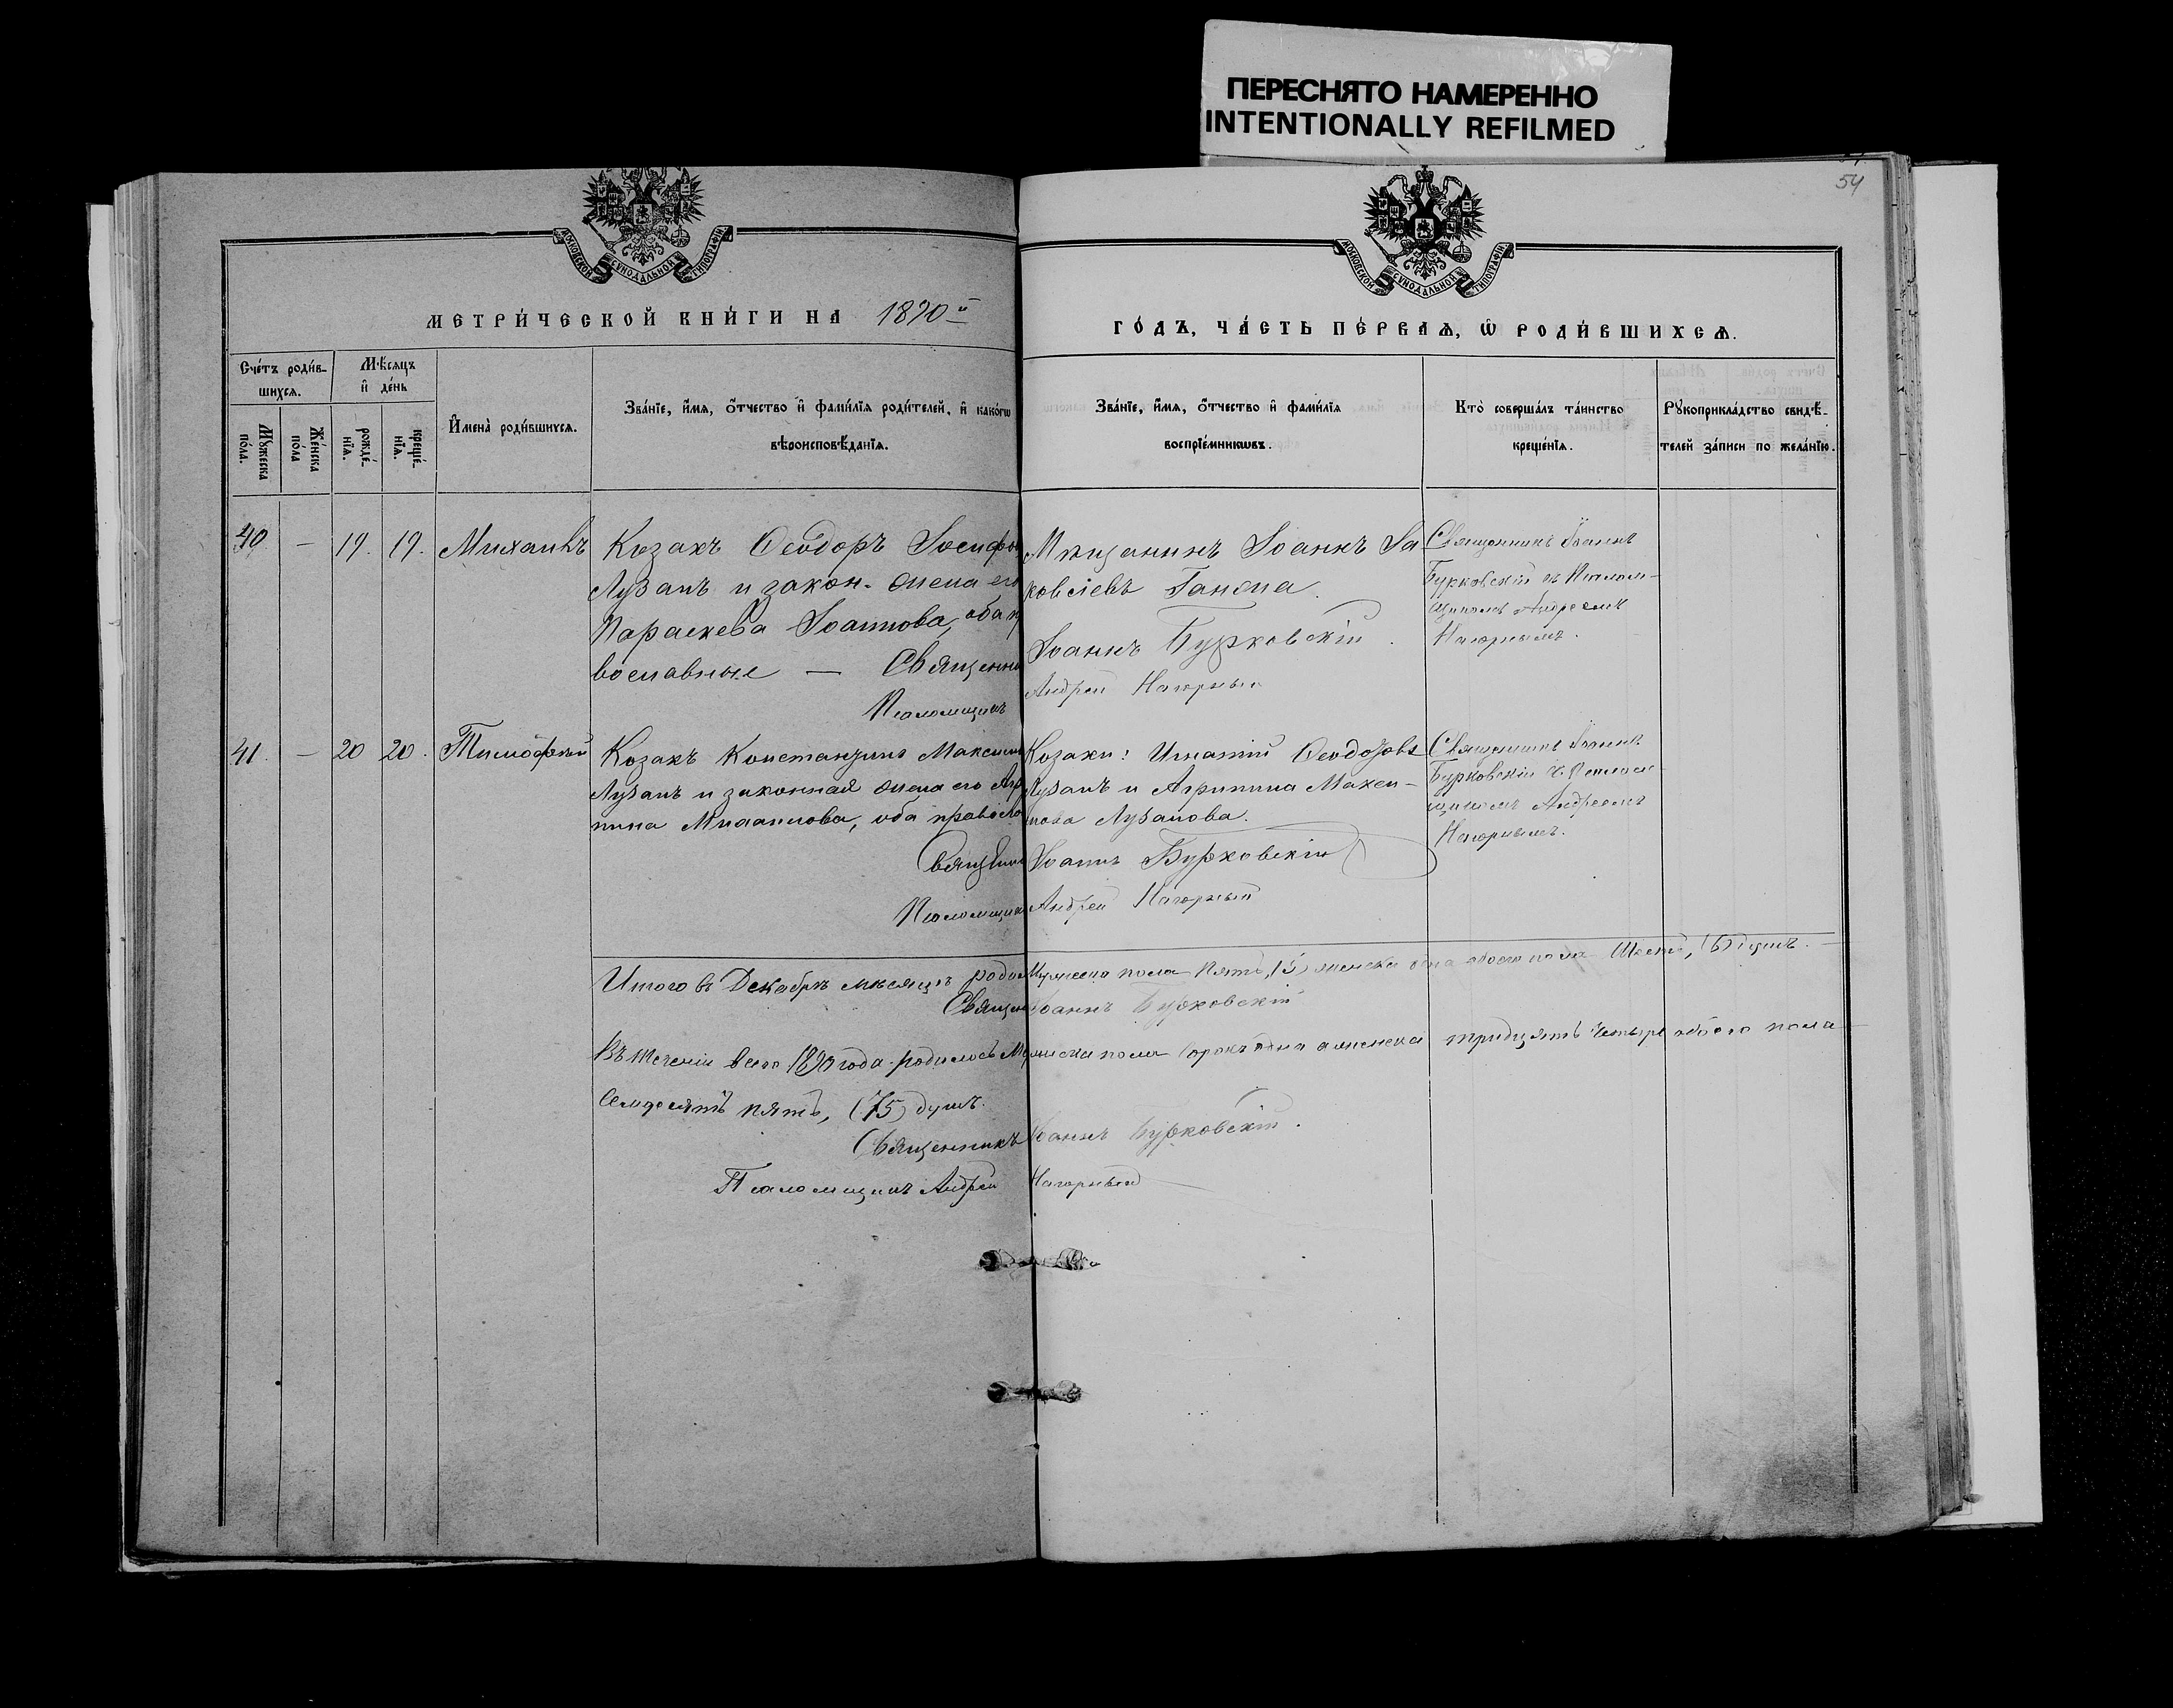 ПЕРЕСНЯТО НАМЕРЕННО
INTENTIONALLY REFILMED
54
МОСКОВСКОЙ СУНОДАЛЬНОЙ ТИПОГРАФІИ
МОСКОВСКОЙ СУНОДАЛЬНОЙ ТИПОГРАФІИ
МЕТРИ́ЧЕСКОЙ КНИ́ГИ НА 1890й
ГО́ДЪ, ЧА́СТЬ ПЕ́РВАѦ, Ѡ РОДИ́ВШИХСѦ.
Сче́тъ роди́в-
шихсѧ.
Мѣ́сѧцъ
и҆ де́нь
Мꙋ́жеска по́ла.
Же́нска по́ла
рожде́-
нїѧ.
креще́-
нїѧ.
И҆мена̀ роди́вшихсѧ.
Зва́нїе, и҆́мѧ, ѻ҆́тчество и҆ фами́лїѧ роди́телей, и҆ како́гѡ
вѣроисповѣ́данїѧ.
Зва́нїе, и҆́мѧ, ѻ҆́тчество и҆ фами́лїѧ
воспрїе́мникѡвъ.
Кто̀ соверша́лъ та́инство
креще́нїѧ.
Рꙋкоприкла́дство свидѣ́-
телей за́писи по жела́нїю.
40 — 19. 19. Михаилъ
Козакъ Ѳеодоръ Іосифов
Лузанъ и закон. жена его
Параскева Іоаннова, оба пр
вославные — Священни
Псаломщикъ
Мѣщанинъ Іоаннъ Іа
ковлевъ Ганжа.
Іоаннъ Бурковскій.
Андрей Нагорный
Священникъ Іоаннъ
Бурковскій съ Псалом-
щикомъ Андреемъ
Нагорнымъ.
41. — 20 20. Тимофей
Козакъ Константинъ Максим
Лузанъ и законная жена его Агр
пина Михаилова, оба правосла
Священни
Псаломщик
Козаки: Игнатій Ѳеодоровъ
Лузанъ и Агрипина Макси-
мова Лузанова.
Іоаннъ Бурковскій
Андрей Нагорный
Священникъ Іоаннъ
Бурковскій съ Псалом-
щикомъ Андреемъ
Нагорнымъ.
Итого въ Декабрѣ мѣсяцѣ родил Мужеска пола Пять, (5) женска одна обоего пола Шесть, (6) душъ. —
Священ Іоаннъ Бурковскій
Въ теченіи всего 1890 года родилось Мужеска пола Сорокъ одна а женска тридцать четыре обоего пола
Семдесятъ пять, (75) душъ.
Священникъ Іоаннъ Бурковскій.
Псаломщикъ Андрей Нагорный